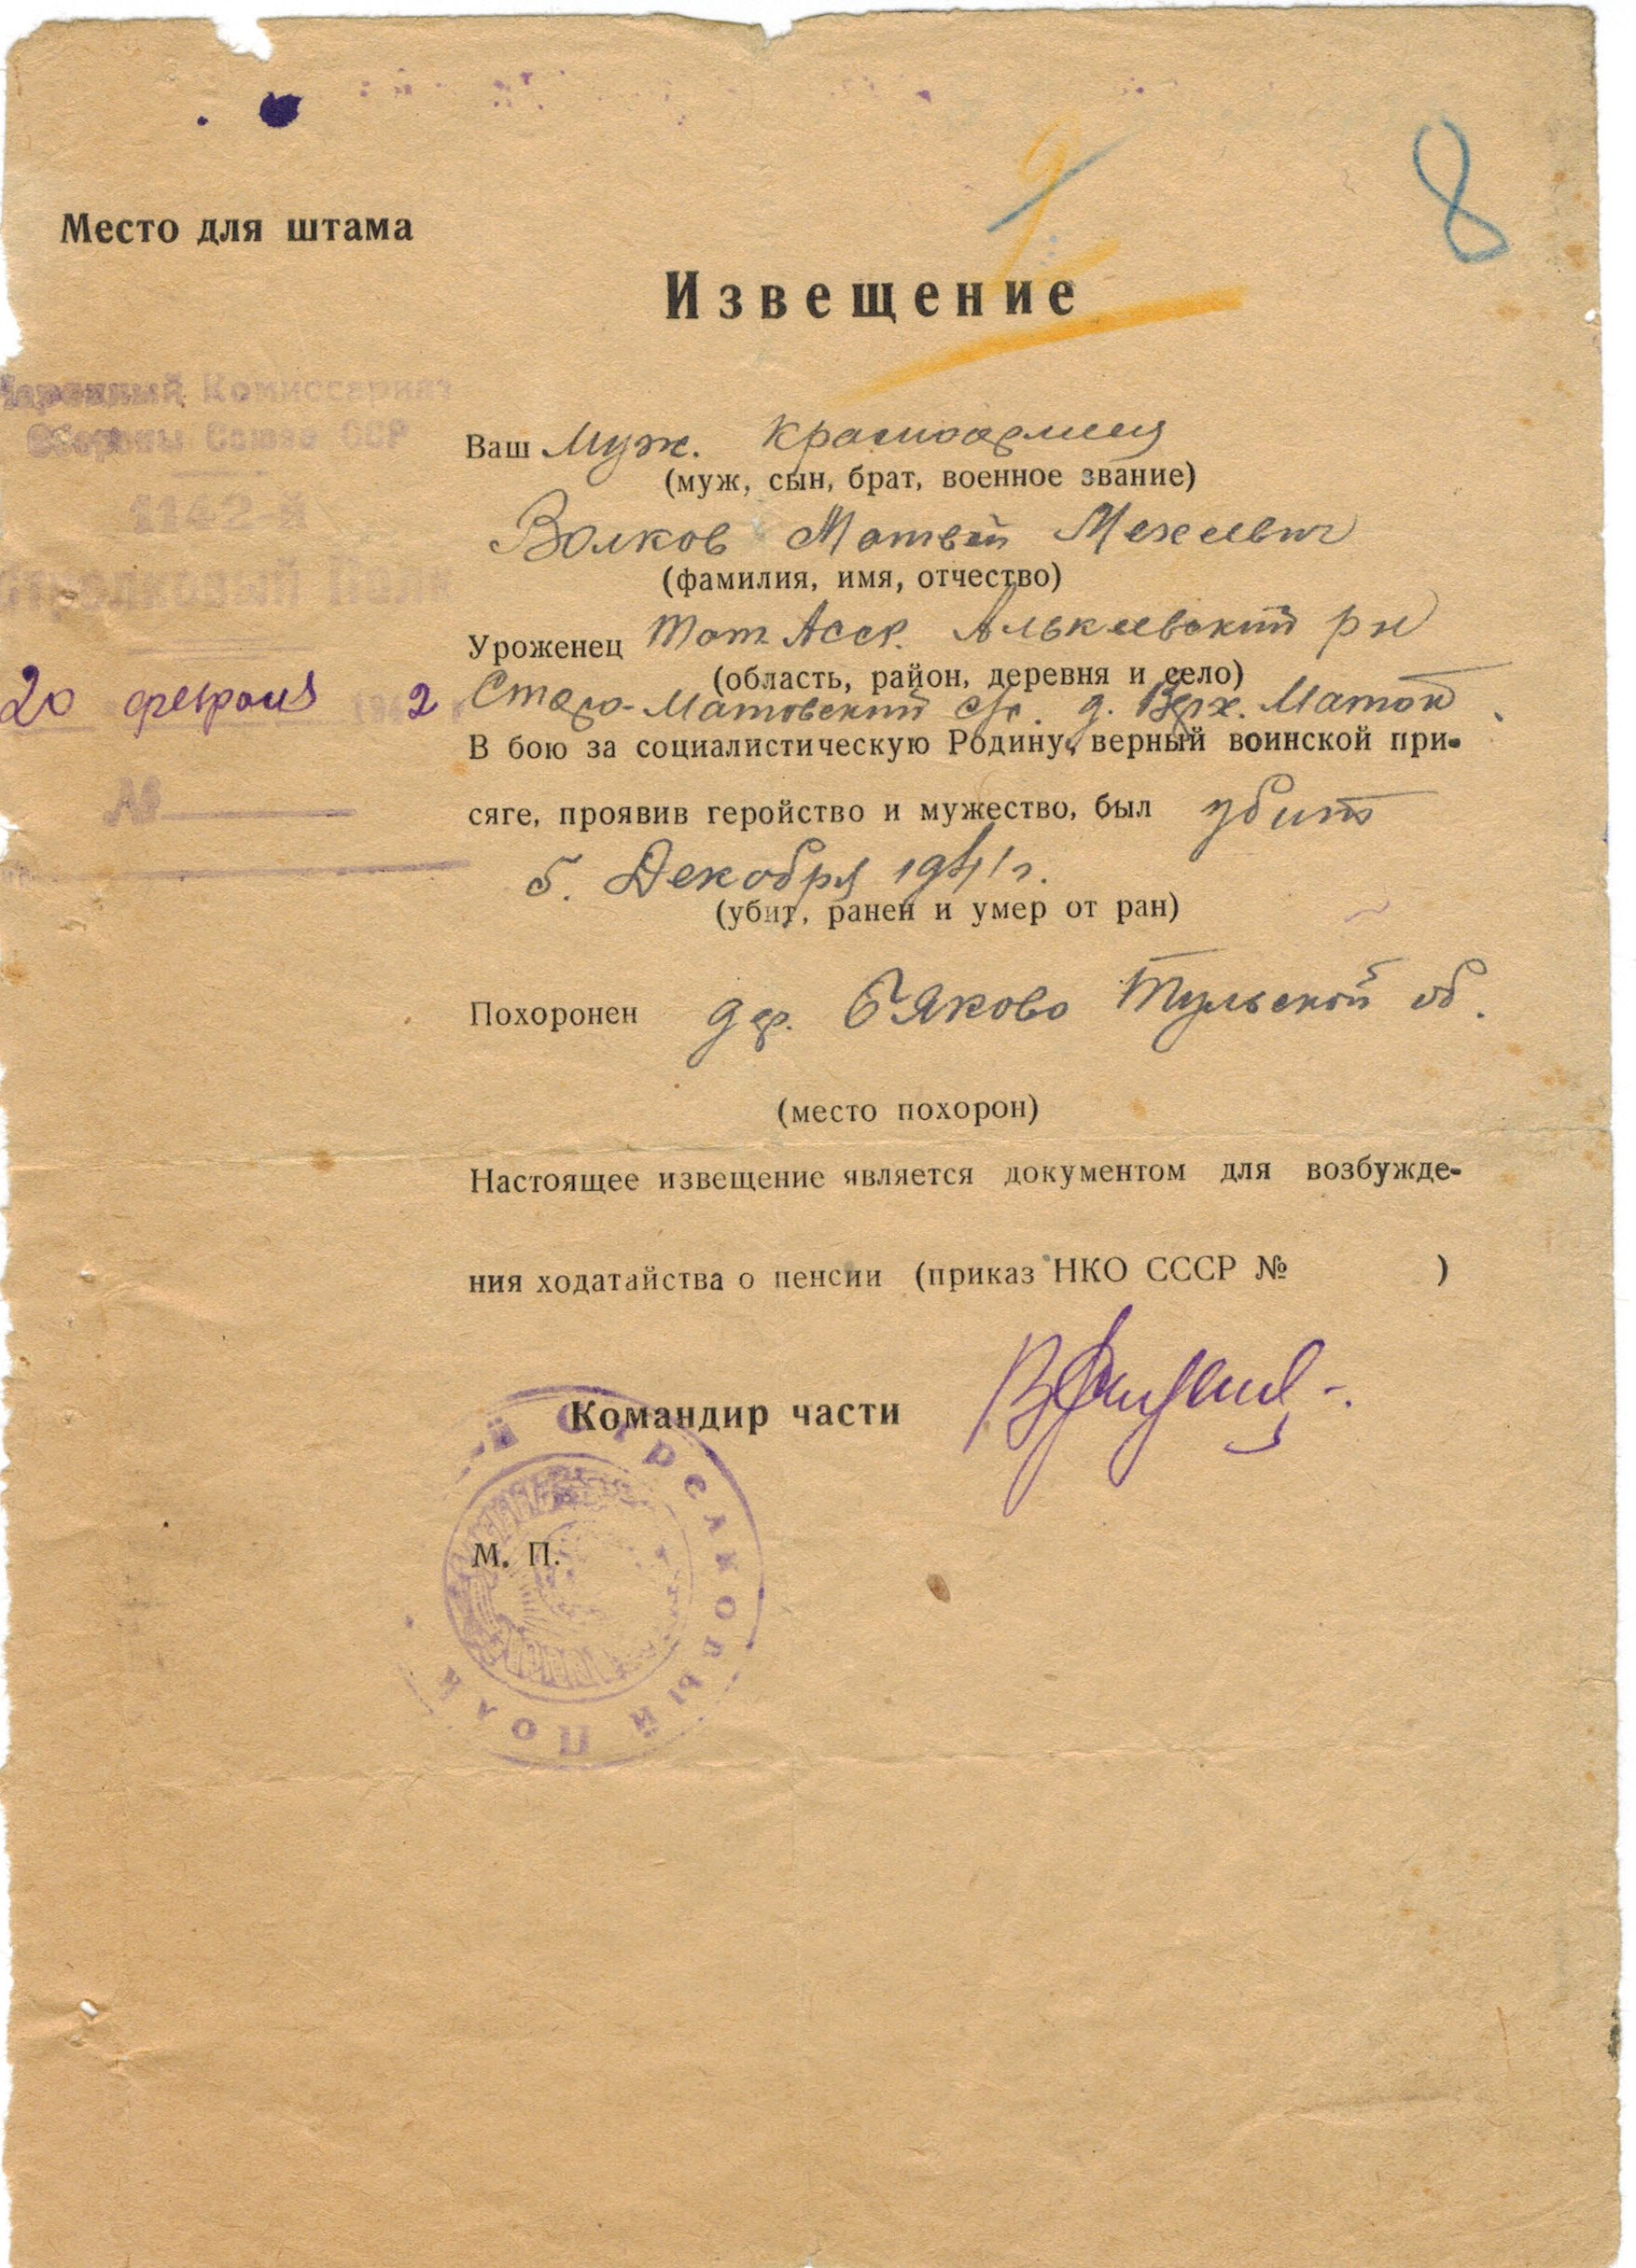 8
Место для штама
Извещение
Народный Комиссариат
Обороны Союза ССР
1142-й
Стрелковый Полк
20 февраля 1942
№
Ваш Муж. Красноармеец
(муж, сын, брат, военное звание)
Волков Матвей
(фамилия, имя, отчество)
Уроженец Тат. Асср. Алькеевский рн
(область, район, деревня и село)
Старо-Матовский с/с. д. Верх. Матак
В бою за социалистическую Родину, верный воинской при-
сяге, проявив геройство и мужество, был убит
5. Декабря 1941 г.
(убит, ранен и умер от ран)
Похоронен дер. Бяково Тульской об.
(место похорон)
Настоящее извещение является документом для возбужде-
ния ходатайства о пенсии (приказ НКО СССР № )
Командир части
М. П.
й Стрелковый Полк